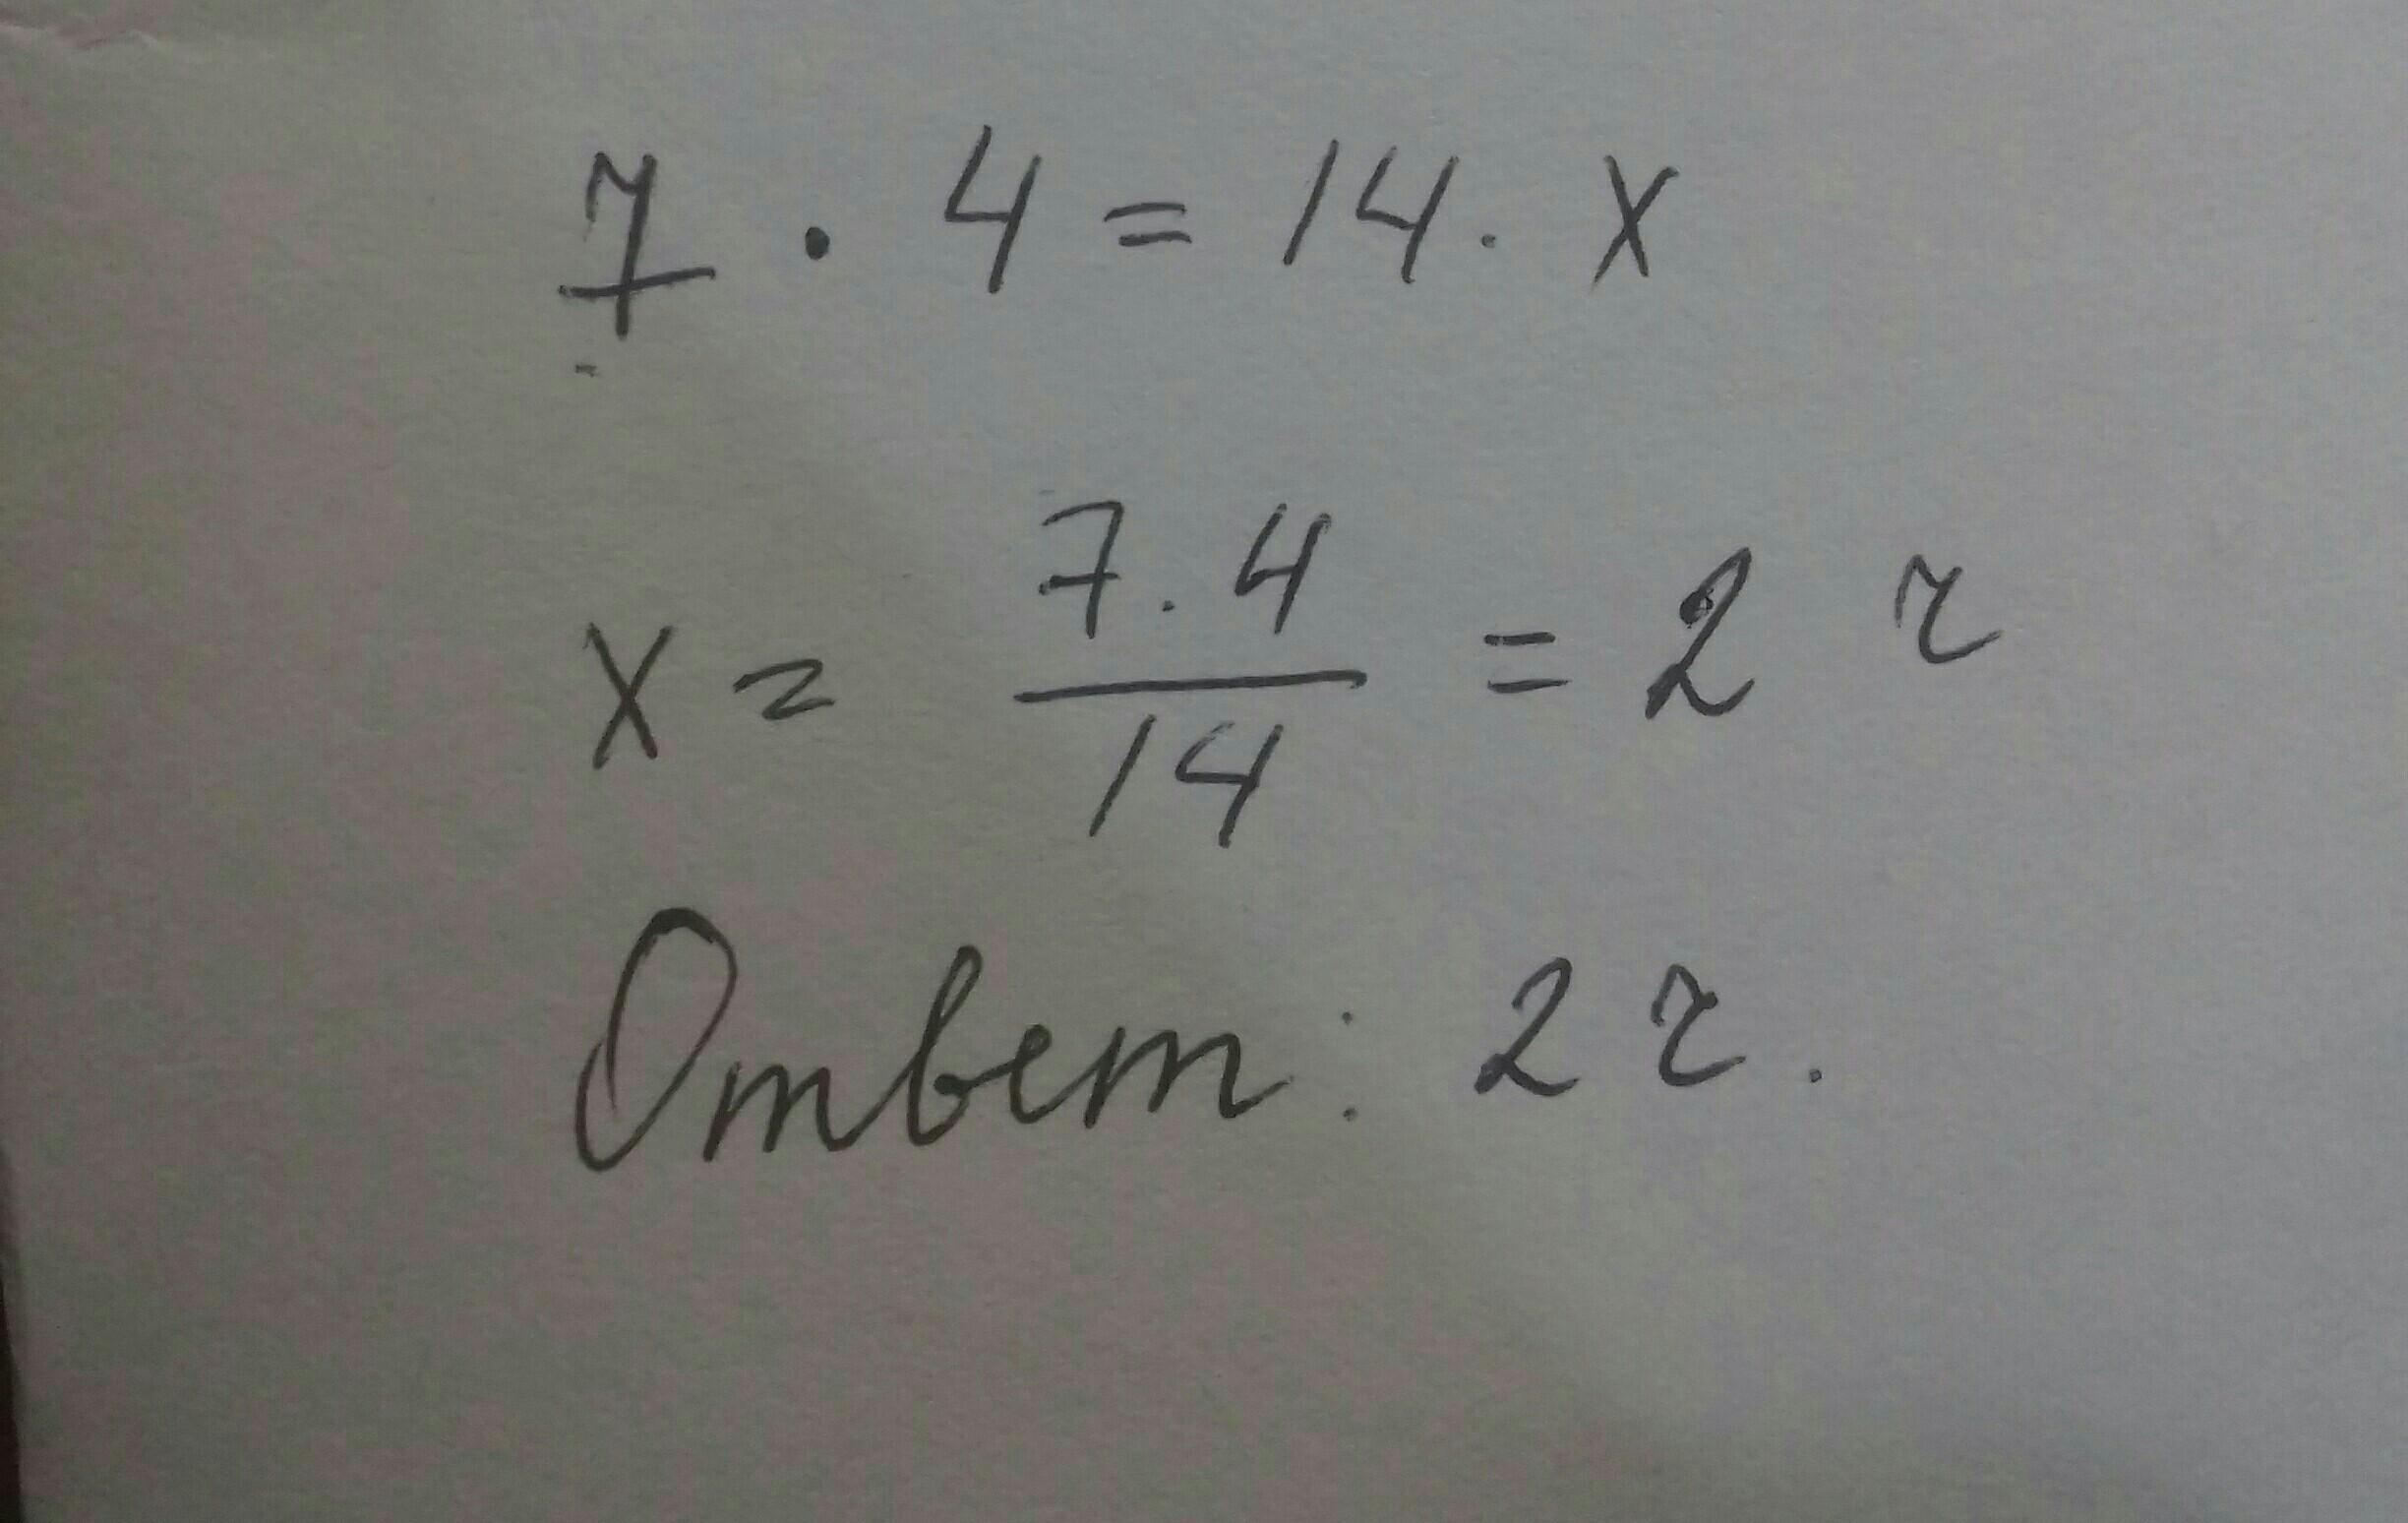 7 · 4 = 14 · x
x = 7 · 4 / 14 = 2 г
Ответ: 2 г.